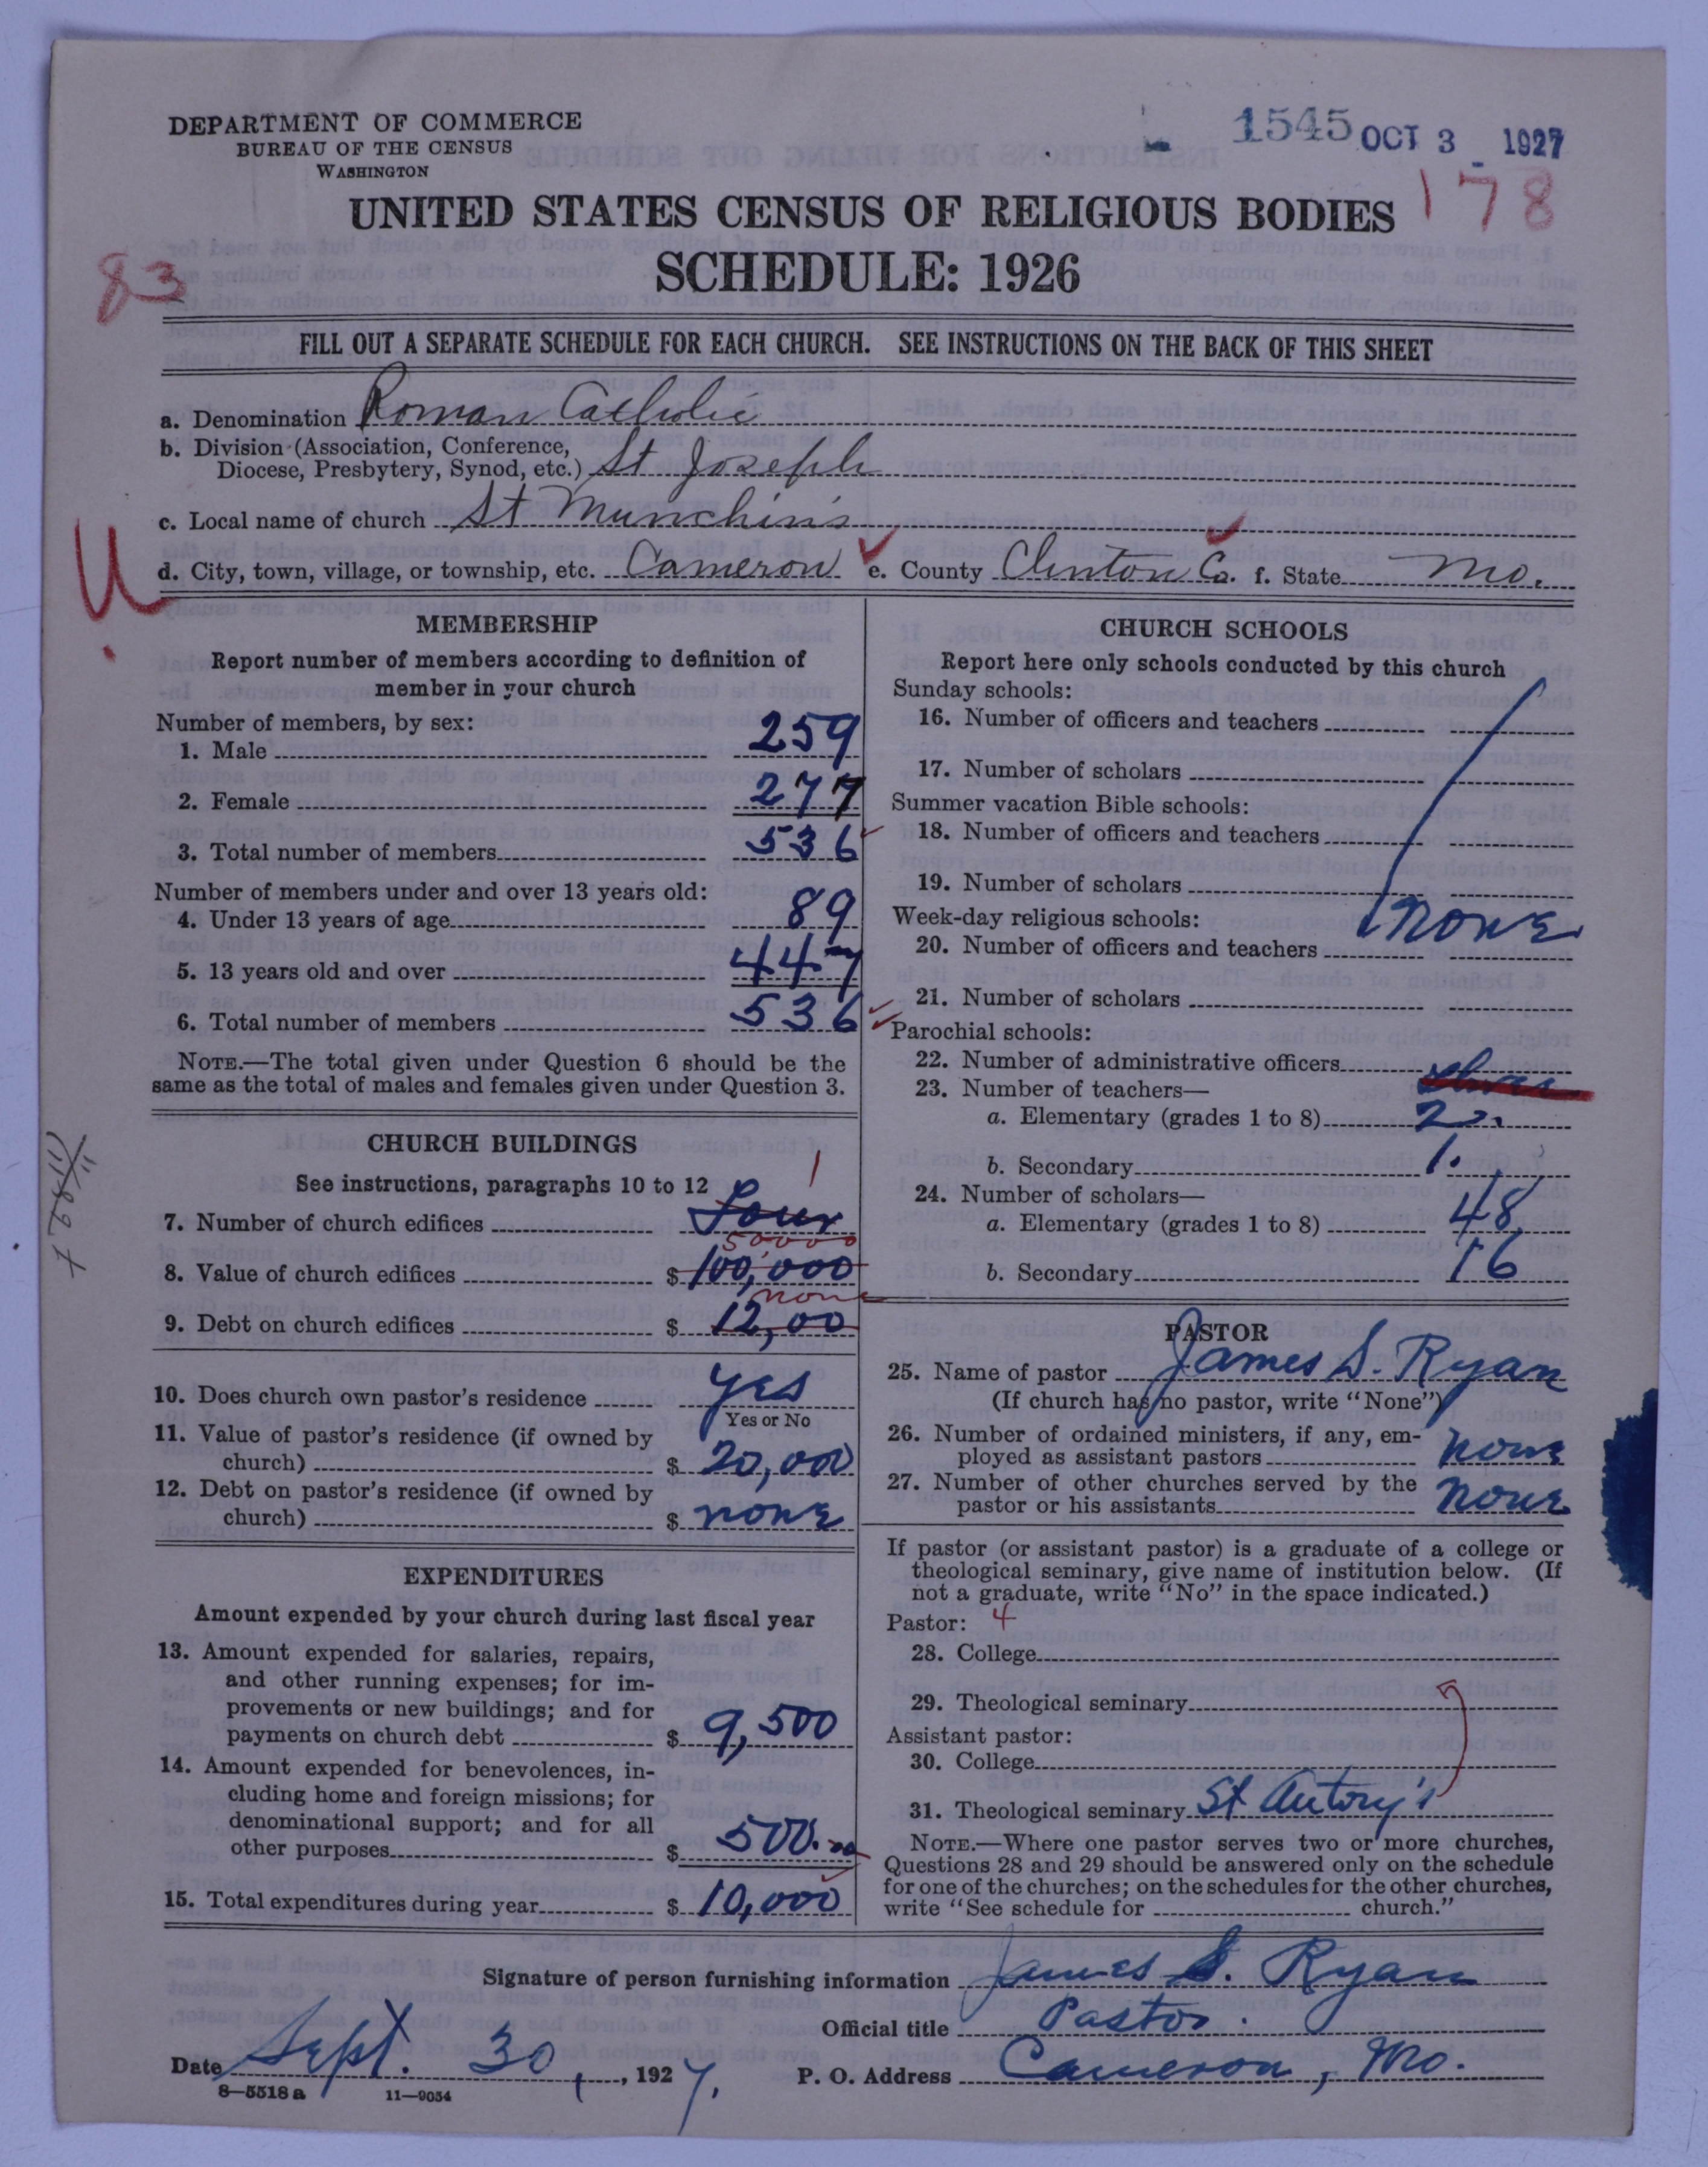 DEPARTMENT OF COMMERCE
BUREAU OF THE CENSUS
WASHINGTON
1545 OCT 3 1927
178
UNITED STATES CENSUS OF RELIGIOUS BODIES
SCHEDULE: 1926
83
FILL OUT A SEPARATE SCHEDULE FOR EACH CHURCH. SEE INSTRUCTIONS ON THE BACK OF THIS SHEET
a. Denomination Roman Catholic
b. Division (Association, Conference,
Diocese, Presbytery, Synod, etc.) St Joseph
c. Local name of church St Munchin's
d. City, town, village, or township, etc. Cameron e. County Clinton Co. f. State Mo.
MEMBERSHIP
Report number of members according to definition of
member in your church
Number of members, by sex:
1. Male 259
2. Female 277
3. Total number of members 536
Number of members under and over 13 years old:
4. Under 13 years of age 89
5. 13 years old and over 447
6. Total number of members 536
NOTE.—The total given under Question 6 should be the
same as the total of males and females given under Question 3.
CHURCH BUILDINGS
See instructions, paragraphs 10 to 12
1
7. Number of church edifices Four
50000
8. Value of church edifices $ 100,000
none
9. Debt on church edifices $ 12,00
10. Does church own pastor's residence yes
Yes or No
11. Value of pastor's residence (if owned by
church) $ 20,000
12. Debt on pastor's residence (if owned by
church) $ none
EXPENDITURES
Amount expended by your church during last fiscal year
13. Amount expended for salaries, repairs,
and other running expenses; for im-
provements or new buildings; and for
payments on church debt $ 9,500
14. Amount expended for benevolences, in-
cluding home and foreign missions; for
denominational support; and for all
other purposes $ 500.00
15. Total expenditures during year $ 10,000
CHURCH SCHOOLS
Report here only schools conducted by this church
Sunday schools:
16. Number of officers and teachers
17. Number of scholars
Summer vacation Bible schools:
18. Number of officers and teachers
19. Number of scholars
Week-day religious schools:
none
20. Number of officers and teachers
21. Number of scholars
Parochial schools:
22. Number of administrative officers
23. Number of teachers—
a. Elementary (grades 1 to 8) 2.
b. Secondary 1.
24. Number of scholars—
a. Elementary (grades 1 to 8) 48
b. Secondary 16
PASTOR
25. Name of pastor James S. Ryan
(If church has no pastor, write "None")
26. Number of ordained ministers, if any, em-
ployed as assistant pastors none
27. Number of other churches served by the
pastor or his assistants none
If pastor (or assistant pastor) is a graduate of a college or
theological seminary, give name of institution below. (If
not a graduate, write "No" in the space indicated.)
Pastor: 4
28. College
29. Theological seminary
Assistant pastor:
30. College
31. Theological seminary St Antony's
NOTE.—Where one pastor serves two or more churches,
Questions 28 and 29 should be answered only on the schedule
for one of the churches; on the schedules for the other churches,
write "See schedule for church."
Signature of person furnishing information James S. Ryan
Official title Pastor.
Date Sept. 30, 1927. P. O. Address Cameron, Mo.
8—5518 a 11—9054